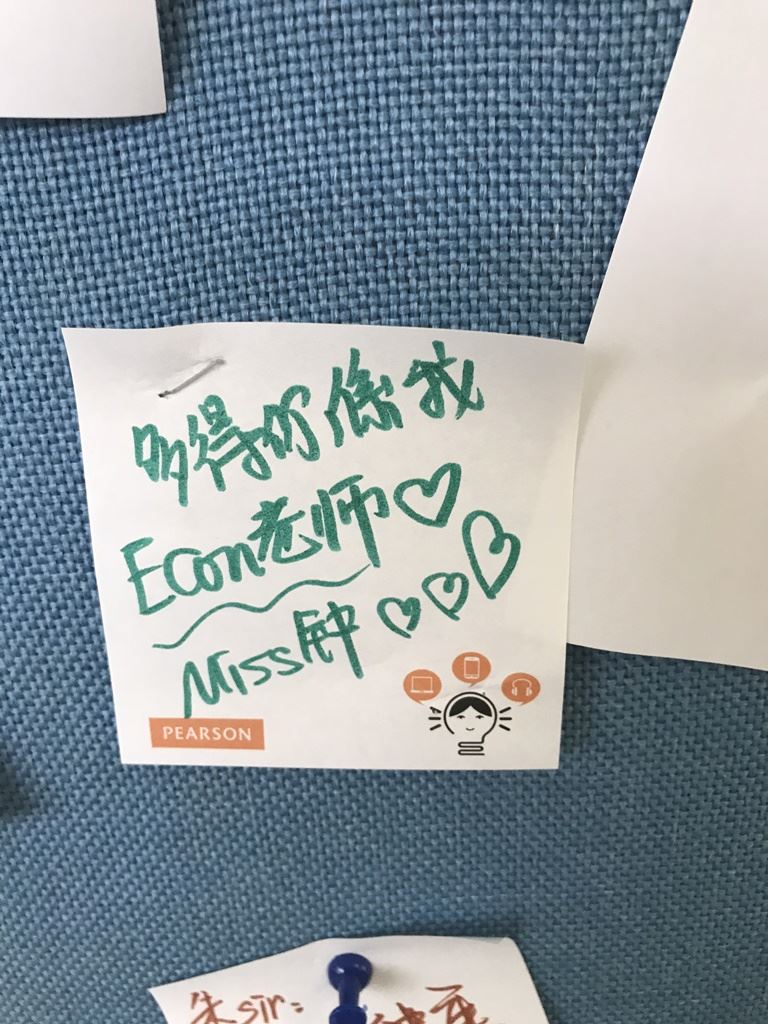 多得你係我
Econ老师♡
Miss钟♡♡♡
PEARSON
朱sir: